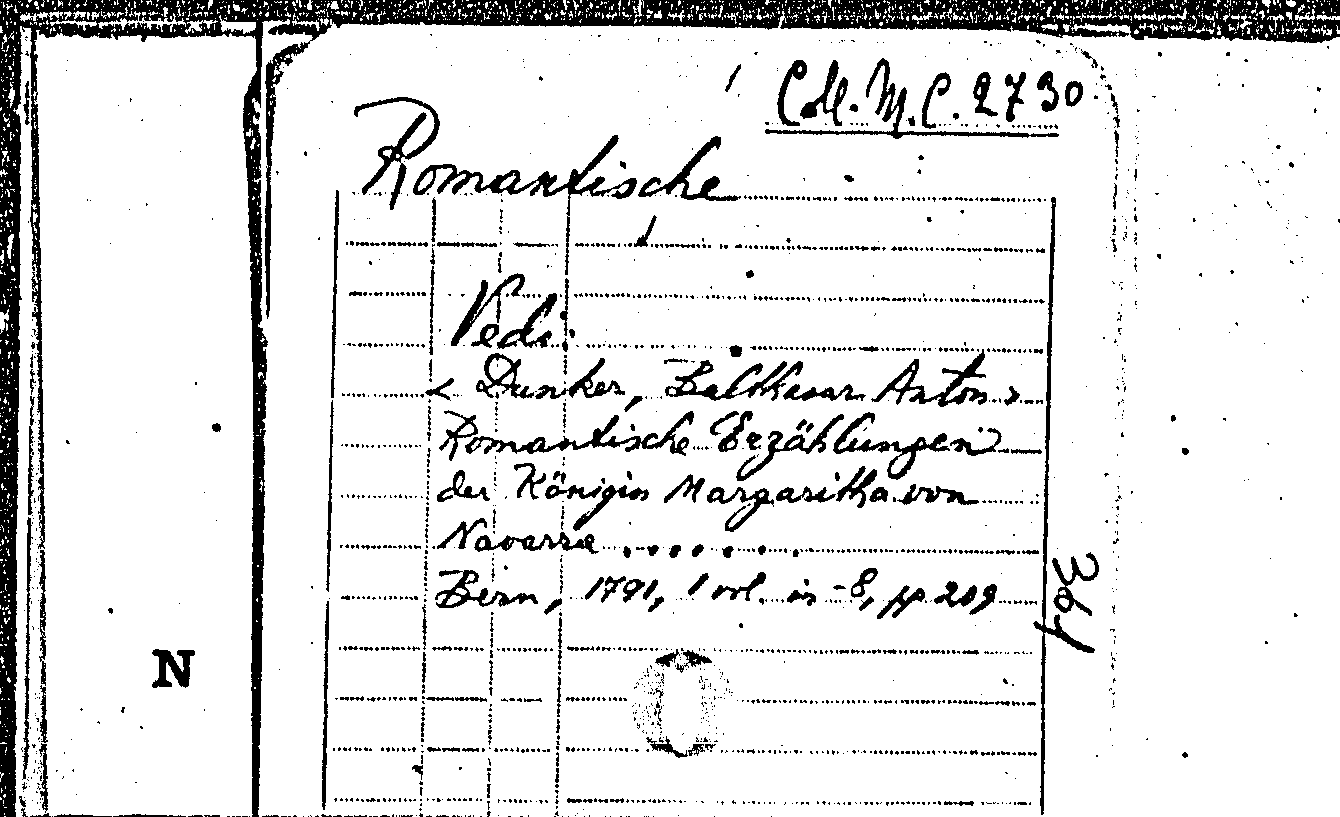 Coll. M. C. 2730
Romantische
Vedi:
< Dunker, Balthasar Anton >
Romantische Erzählungen
der Königin Margaritha von
Navarra . . . . . . .
Bern, 1791, 1 vol. in -8, pp 209
N